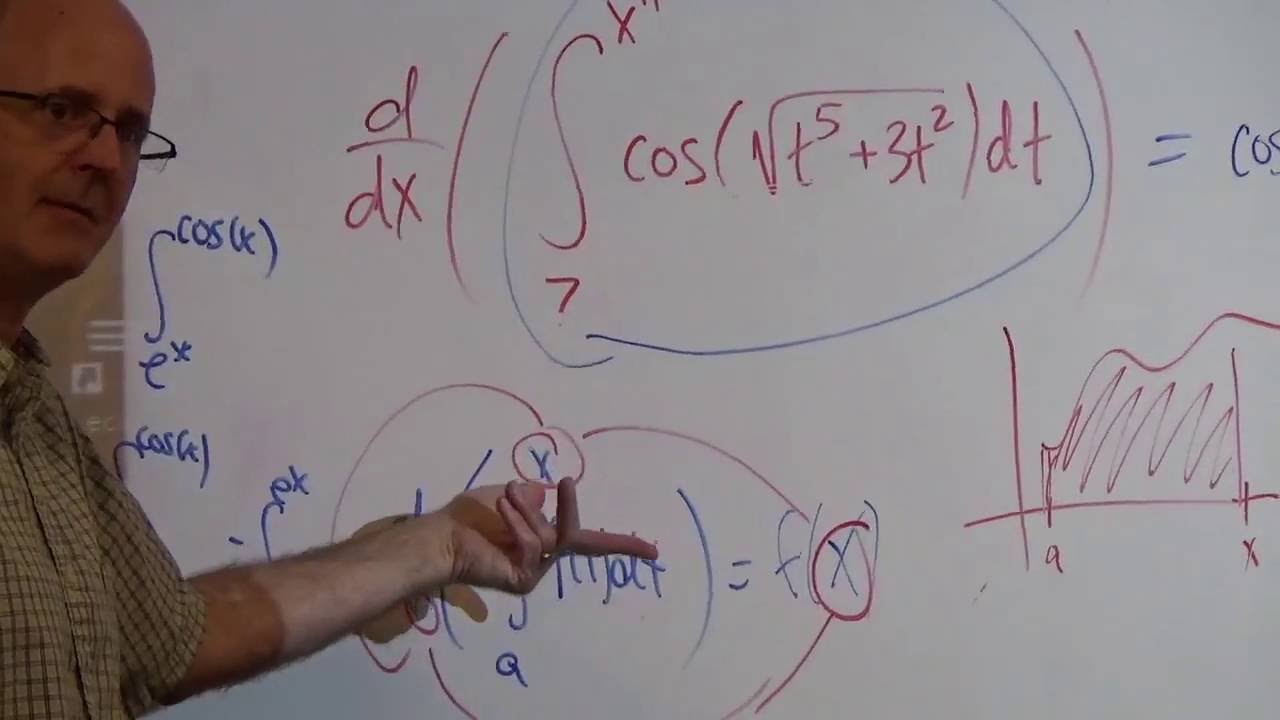 d/dx ( ∫ 7 x cos(√t⁵+3t²)dt ) = cos
∫ e^x cos(x)
cos(x)
- ∫ e^x
d ( ∫ a x dt ) = f(x)
a x